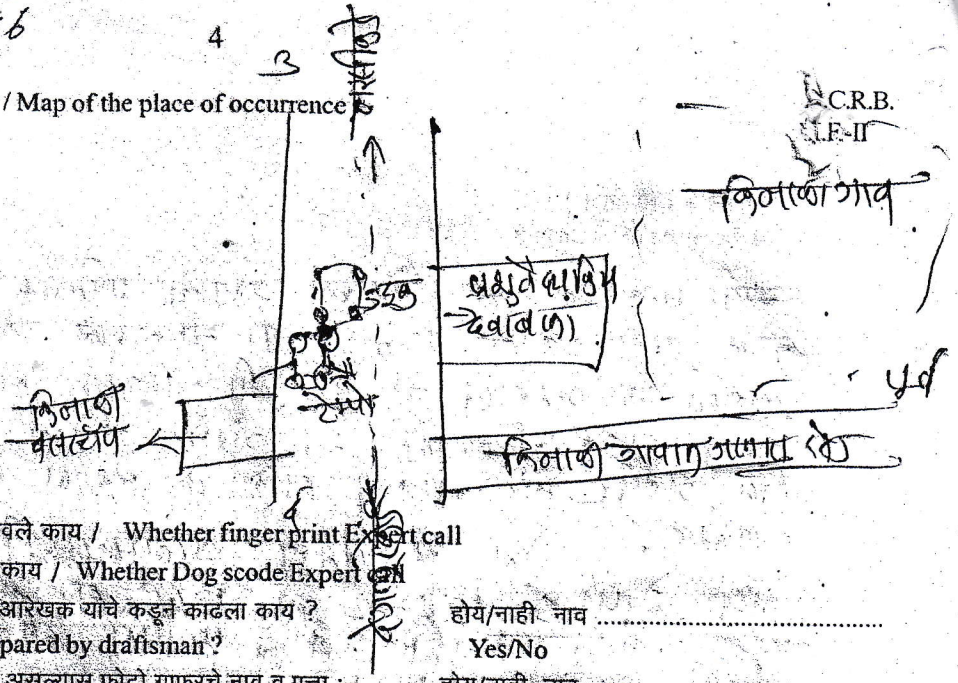 4
3
/ Map of the place of occurrence
C.R.B.
I.F.-II
किनाळा गाव
ट्रक
पशुवैद्यकिय
दवाखाना
टेम्पो
पुर्व
किनाळा
बसस्टॉप
किनाळा गावात जाणारा रोड
वले काय / Whether finger print Expert call
काय / Whether Dog scode Expert call
आरेखक यांचे कडून काढला काय ?
होय/नाही नाव
pared by draftsman ?
Yes/No
असल्यास फोटो ग्राफरचे नाव व पत्ता :
होय/नाही नाव